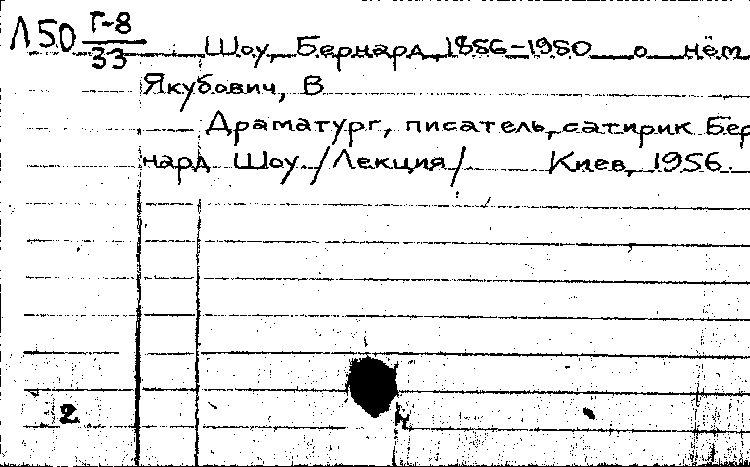 Л50 Г-8
33
Шоу, Бернард, 1856-1950 о нём
Якубович, В
Драматург, писатель, сатирик Бер
нард Шоу /Лекция/ Киев, 1956.
2